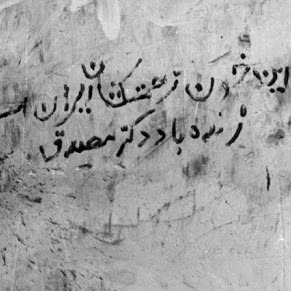 این خون زحمتکشان ایران
زنده باد دکتر مصدق